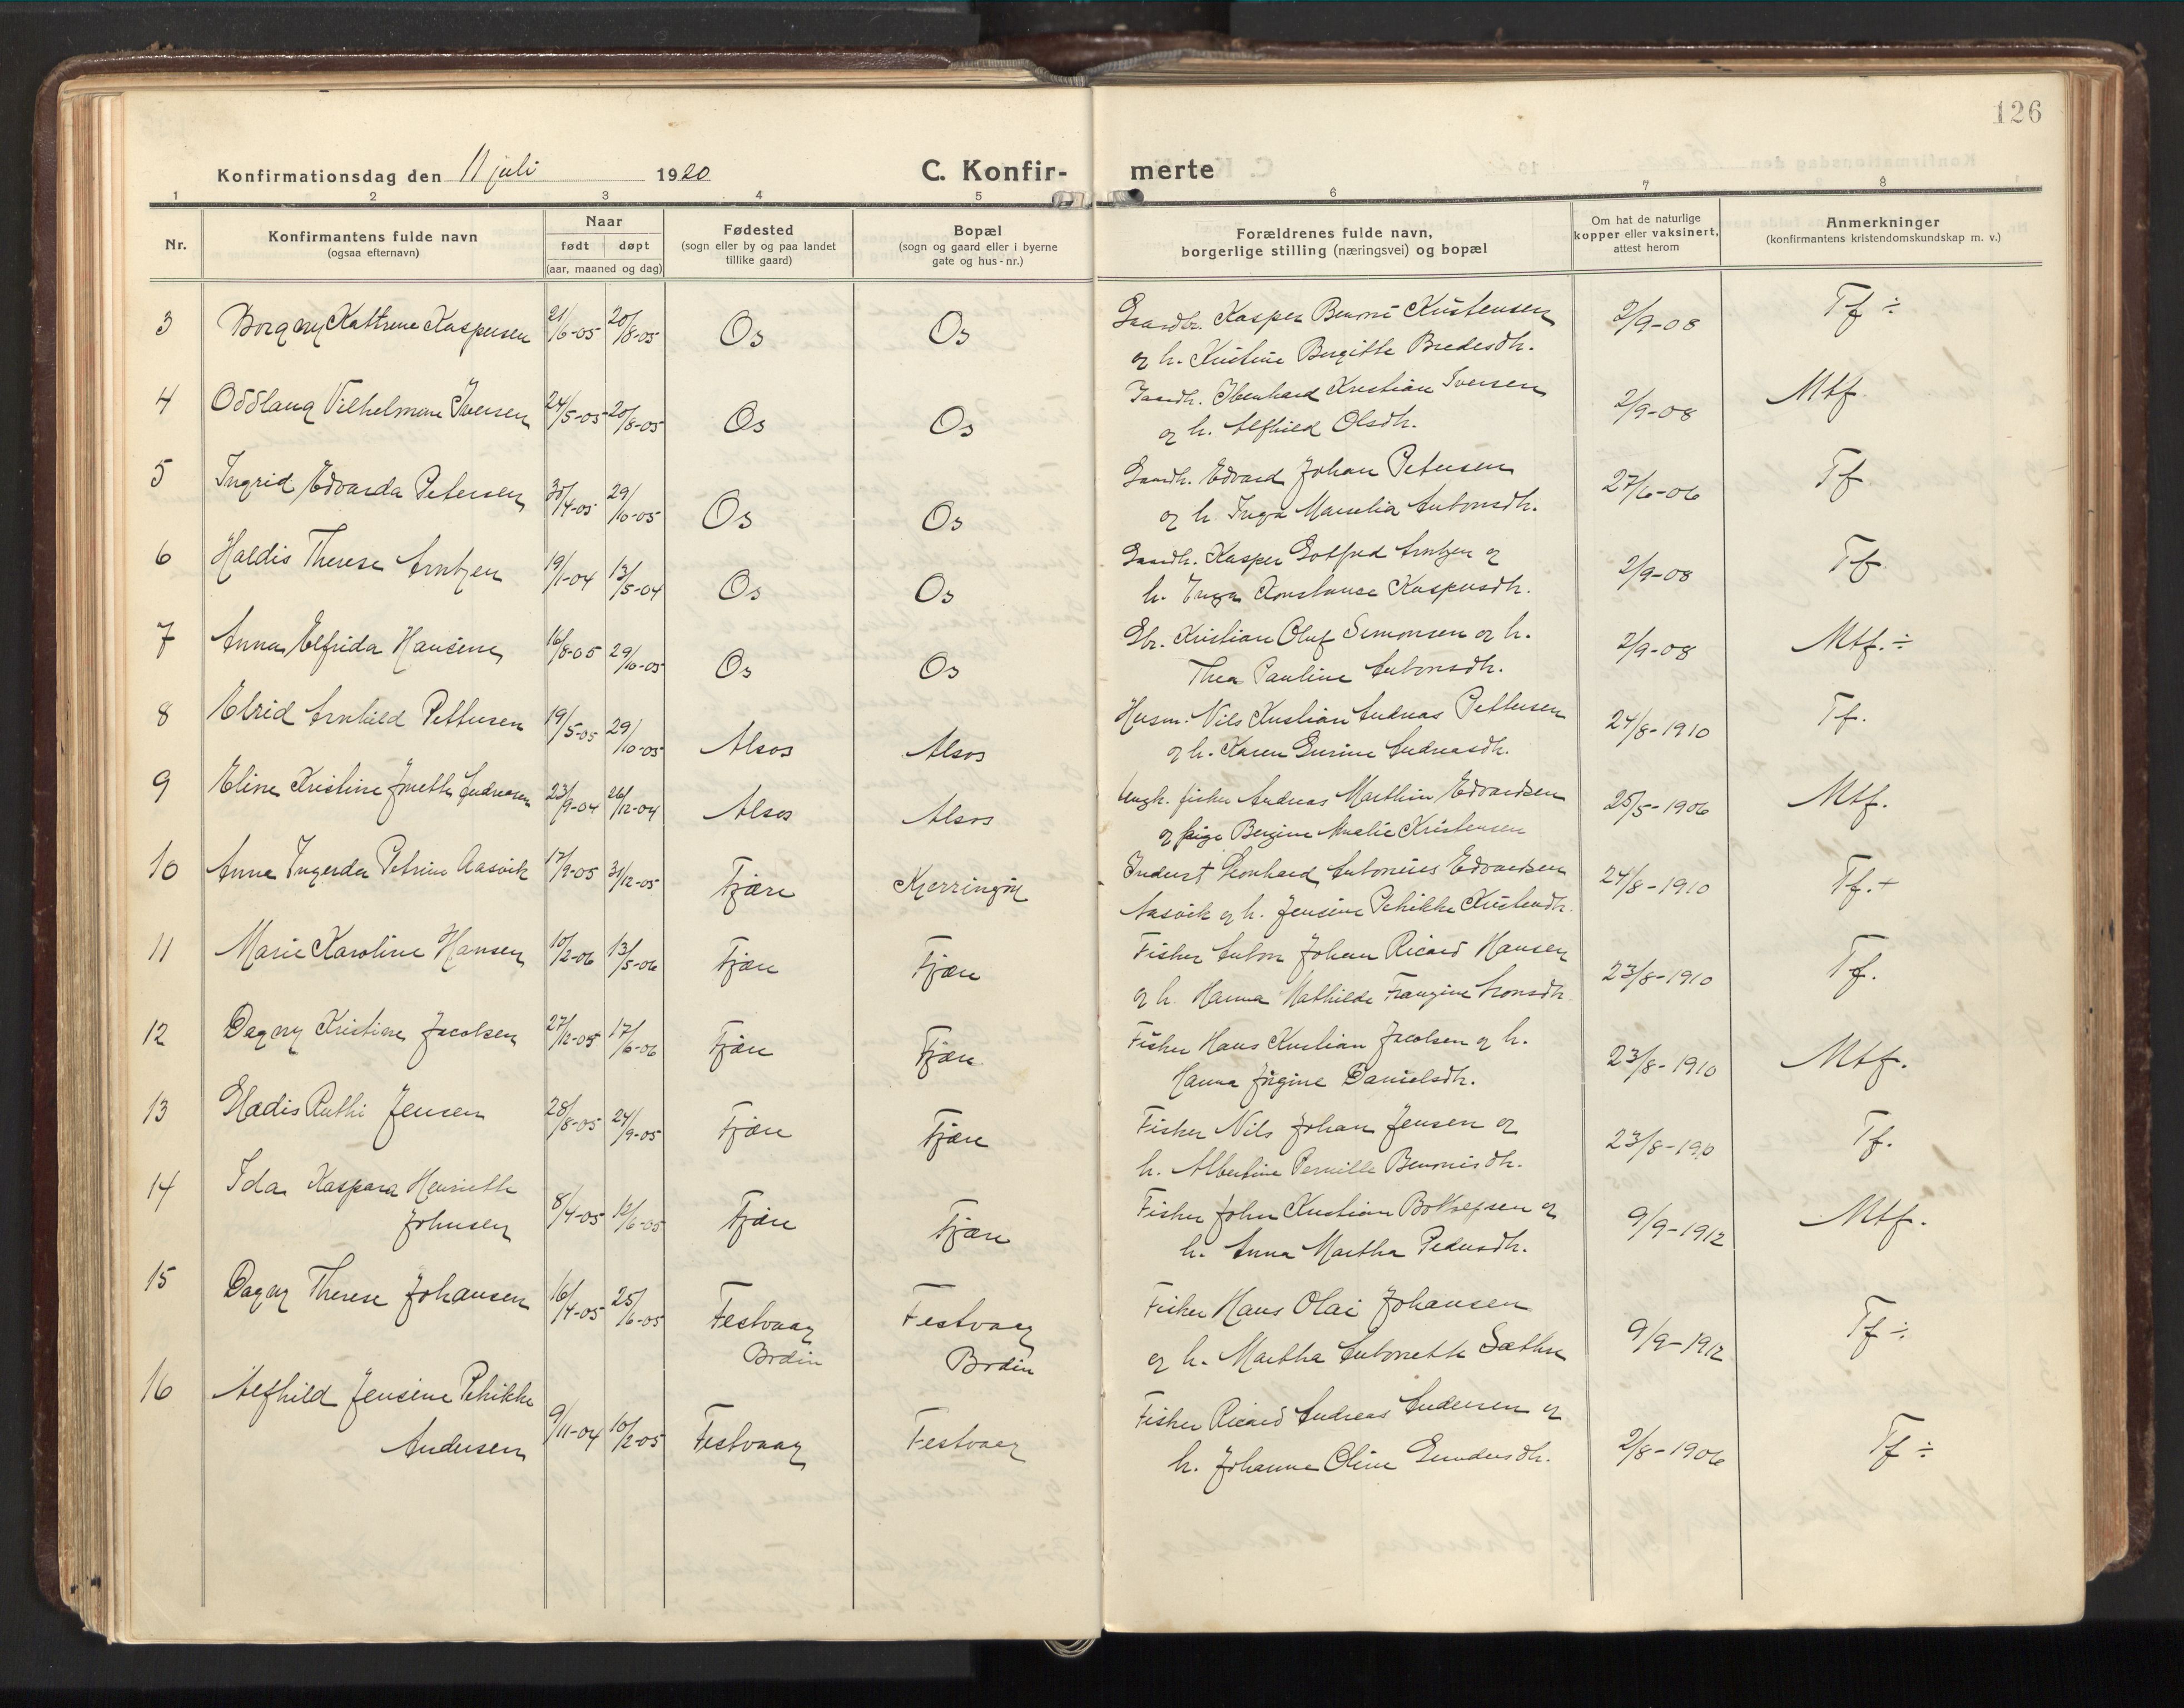 126
Konfirmationsdag den 11 juli 1920 C. Konfir- merte
1 2 3 4 5 6 7 8
Nr.
Konfirmantens fulde navn
(ogsaa efternavn)
Naar
født døpt
(aar, maaned og dag)
Fødested
(sogn eller by og paa landet
tillike gaard)
Bopæl
(sogn og gaard eller i byerne
gate og hus-nr.)
Forældrenes fulde navn,
borgerlige stilling (næringsvei) og bopæl
Om hat de naturlige
kopper eller vaksinert,
attest herom
Anmerkninger
(konfirmantens kristendomskundskap m. v.)
3 Borgny Kattrene Kaspersen 21/6-05 20/8-05 Os Os Gaardbr. Kasper Benoni Kristensen 2/9-08 Tf ÷
og h. Kristine Bergitte Bredesdtr.
4 Oddlaug Vilhelmine Iversen 24/5-05 20/8-05 Os Os Kristian Iversen 2/9-08 Mtf.
og h. Alfhild Olsdtr.
5 Ingrid Edvarda Petersen 30/4-05 29/10-05 Os Os Edvard Johan Petersen 27/6-06 Tf
og h. Inga Marselia Antonsdtr.
6 Haldis Therese Arntzen 19/1-04 13/5-04 Os Os Kasper Gotfred Arntzen og 2/9-08 Tf
h. Inga Konstanse Kaspersdtr.
7 Anna Elfrida Hansine 16/8-05 29/10-05 Os Os Gbr. Kristian Oluf Simonsen og h. 2/9-08 Mtf. ÷
Thea Pauline Antonsdtr.
8 Elrid Arnhild Pettersen 19/5-05 29/10-05 Alsos Alsos Husm. Nils Kristian Andreas Pettersen 24/8-1910 Tf.
og h. Karen Gurine Andreasdtr.
9 Eline Kristine Andreasen 23/9-04 26/12-04 Alsos Alsos Ungk. fisker Andreas Marthin Edvardsen 25/5-1906 Mtf.
og pige Bergine Amalie Kristensen
10 Anna Ingerda Petrine Aasvik 17/9-05 31/12-05 Fjære Kjerringøy Inderst Leonhard Antonius Edvardsen 24/8-1910 Tf. +
Aasvik og h. Jensine Pehikke
11 Marie Karoline Hansen 10/2-06 13/5-06 Fjære Fjære Fisker Anton Johan Ricard Hansen 23/8-1910 Tf.
og h. Hanna Mathilde Franzine
12 Dagny Kristine Jacobsen 27/12-05 17/6-06 Fjære Fjære Fisker Hans Kristian Jacobsen og h. 23/8-1910 Mtf.
Hanna Danielsdtr.
13 Gladis Ruthi Jensen 28/8-05 24/9-05 Fjære Fjære Fisker Nils Johan Jensen og 23/8-1910 Tf.
h. Albertine Pernille Benonisdtr.
14 Ida Kaspara Henriette 8/4-05 12/6-05 Fjære Fjære Fisker Johan Kristian og 9/9-1912 Mtf.
Johnsen h. Anna Martha Pedersdtr.
15 Dagny Therese Johansen 16/4-05 25/6-05 Festvaag Festvaag Fisker Hans Olai Johansen 9/9-1912 Tf ÷
Bodin Bodin og h. Martha Antonette Sæther
16 Alfhild Jensine Pehikke Fisker Ricard Andreas Andersen og
Andersen 9/11-04 10/2-05 Festvaag Festvaag h. Johanna Oline 2/8-1906 Tf ÷